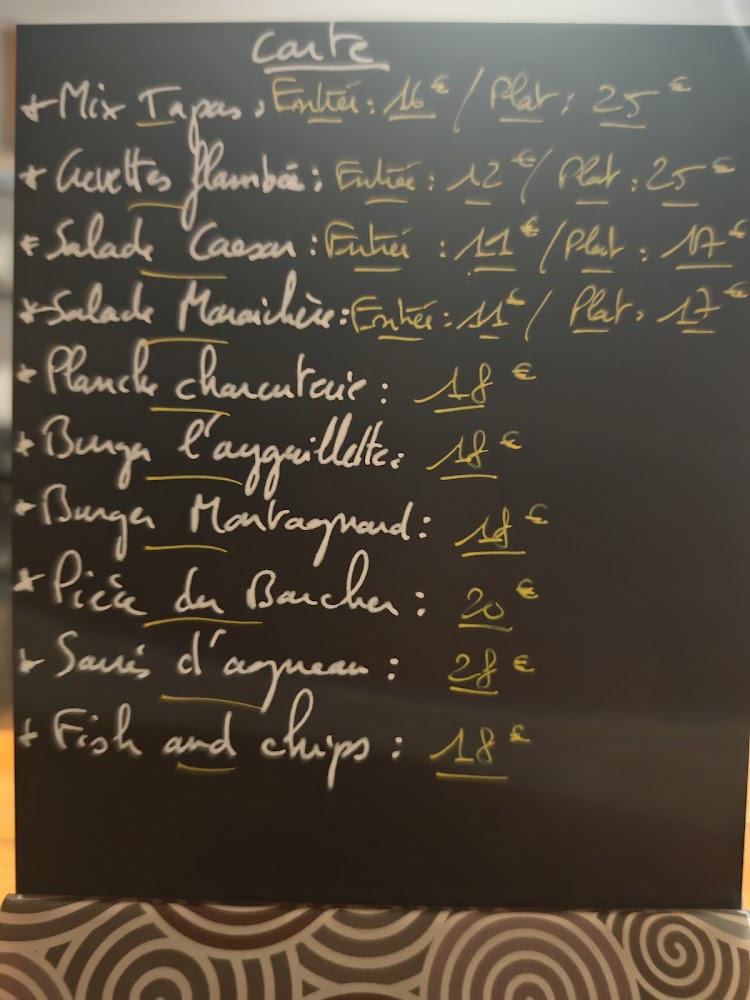 Carte
* Mix Tapas : Entrée : 16 € / Plat : 25 €
* Crevettes flambée : Entrée : 12 € / Plat : 25 €
* Salade Caesar : Entrée : 11 € / Plat : 17 €
* Salade Maraichère : Entrée : 11 € / Plat : 17 €
* Planche charcuterie : 18 €
* Burger l'ayguillette : 18 €
* Burger Montagnard : 18 €
* Pièce du Boucher : 20 €
* Souris d'agneau : 28 €
* Fish and chips : 18 €